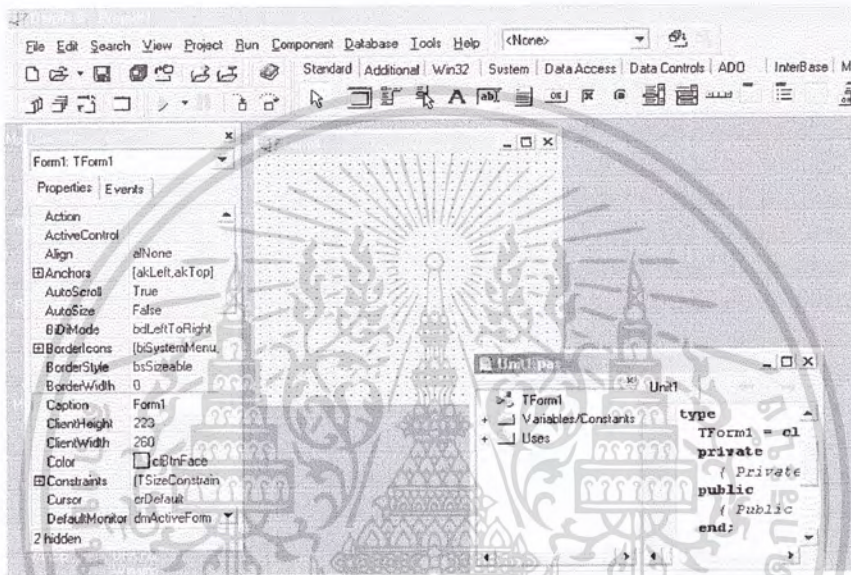 File Edit Search View Project Run Component Database Tools Help <None>
Standard Additional Win32 System Data Access Data Controls ADO InterBase M
Form1: TForm1
Properties Events
Action
ActiveControl
Align alNone
Anchors [akLeft,akTop]
AutoScroll True
AutoSize False
BiDiMode bdLeftToRight
BorderIcons [biSystemMenu,
BorderStyle bsSizeable
BorderWidth 0
Caption Form1
ClientHeight 223
ClientWidth 260
Color clBtnFace
Constraints (TSizeConstrain
Cursor crDefault
DefaultMonitor dmActiveForm
2 hidden
Unit1.pas
Unit1
TForm1
Variables/Constants
Uses
type
TForm1 = cl
private
{ Private
public
{ Public
end;